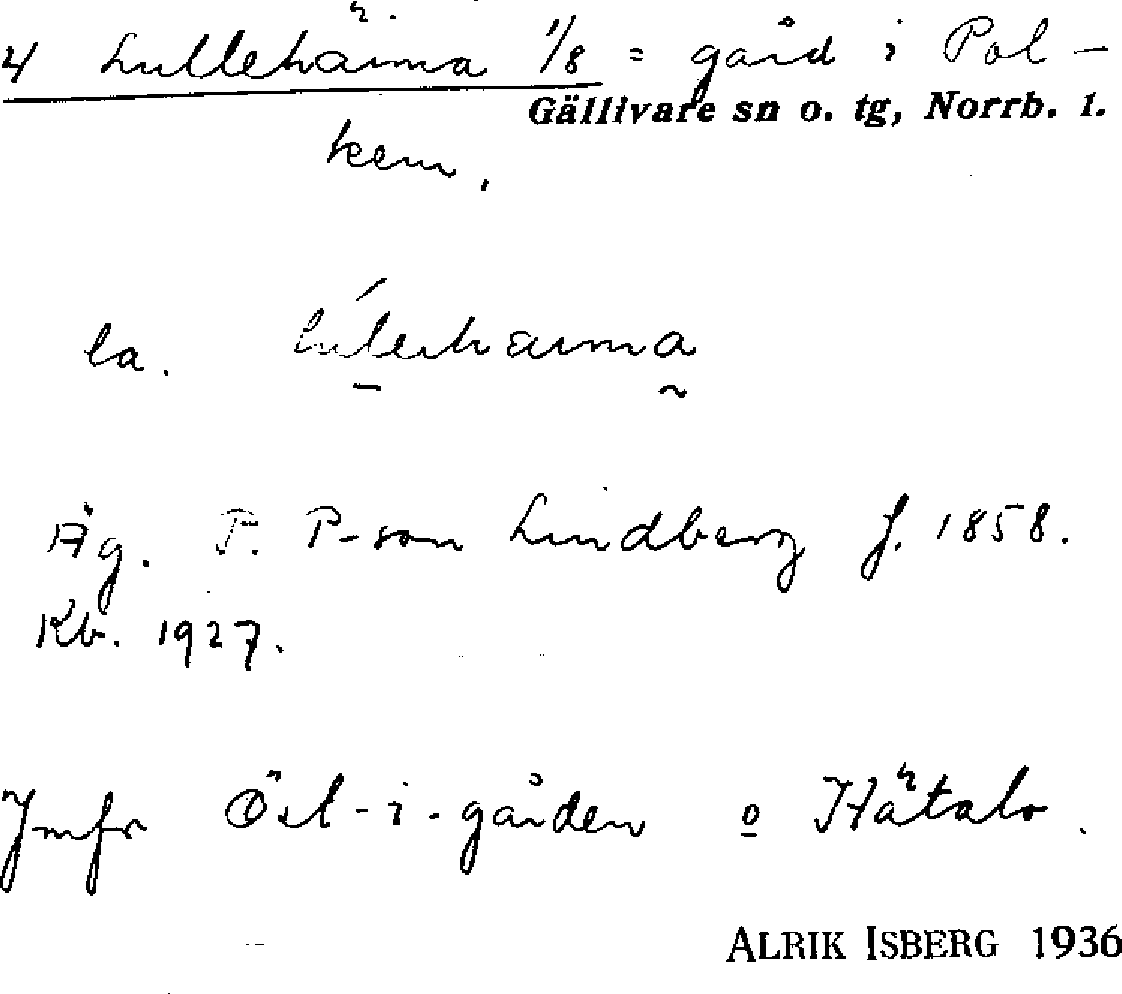 4 Lullehärma 1/8 = gård i Pol-
Gällivare sn o. tg, Norrb. l.
kem.
la. lulleharma
Äg. P. P-son Lindberg f. 1858.
Kb. 1927.
Jmfr Öst-i-gården o Hätalo.
ALRIK ISBERG 1936